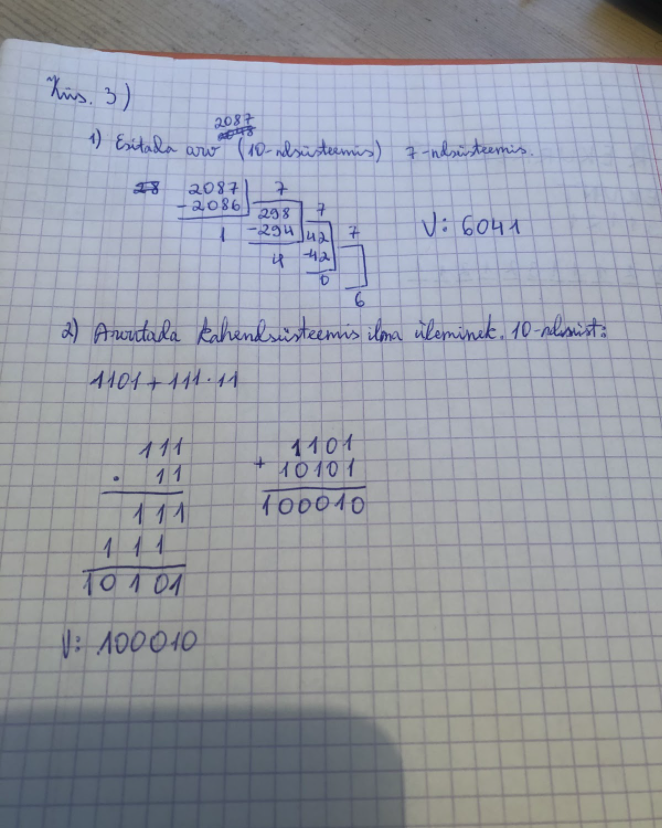 Küs. 3)
2087
1) Esitada arv (10-ndsüsteemis) 7-ndsüsteemis.
2087 7
-2086 298 7
1 -294 42 7
4 -42
0 6
V: 6041
2) Arvutada kahendsüsteemis ilma üleminek. 10-ndsüst:
1101+111·11
111
· 11
111
111
10101
1101
+ 10101
100010
V: 100010